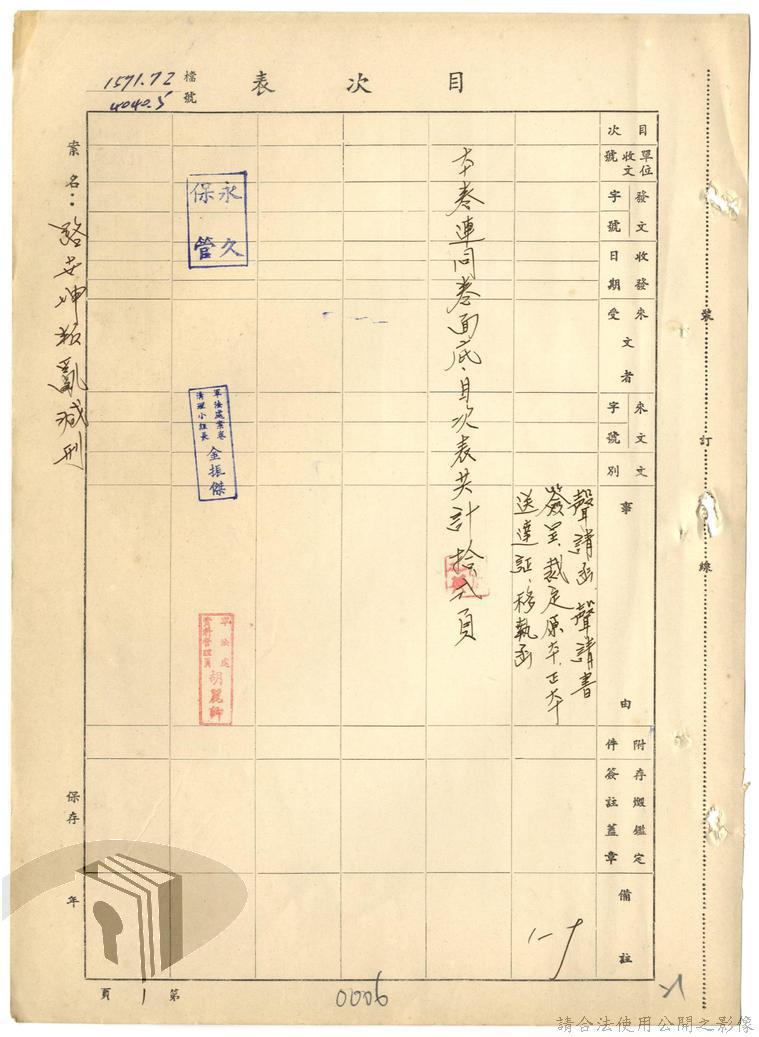 目次表
檔號
1571.72
4040.5
目次
單位收文號
發文字號
收發日期
來文受文者
來文字號
文別
事由
附件
存燬鑑定簽註蓋章
備註
聲請函、聲請書
簽呈、裁定原本、正本
送達証、移執函
1-9
本卷連同卷面底、目次表共計拾弍頁
永久保管
軍法處案卷清理小組長
金振傑
軍法處資料管理員
胡麗
案名：
安坤叛亂減刑
保存 年
第1頁
0006
裝訂線
請合法使用公開之影像